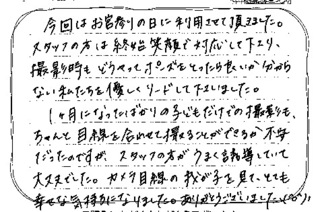 今回はお宮参りの日に利用させて頂きました。
スタッフの方は終始笑顔で対応して下さり、
撮影時もどうやってポーズをとったら良いか分から
ない私たちを優しくリードして下さいました。
1ヶ月になったばかりの子どもだけでの撮影も、
ちゃんと目線を合わせて撮ることができるか不安
だったのですが、スタッフの方がうまく誘導していて
大丈夫でした。カメラ目線の我が子を見て、とても
幸せな気持ちになりました。ありがとうございました。(^o^)